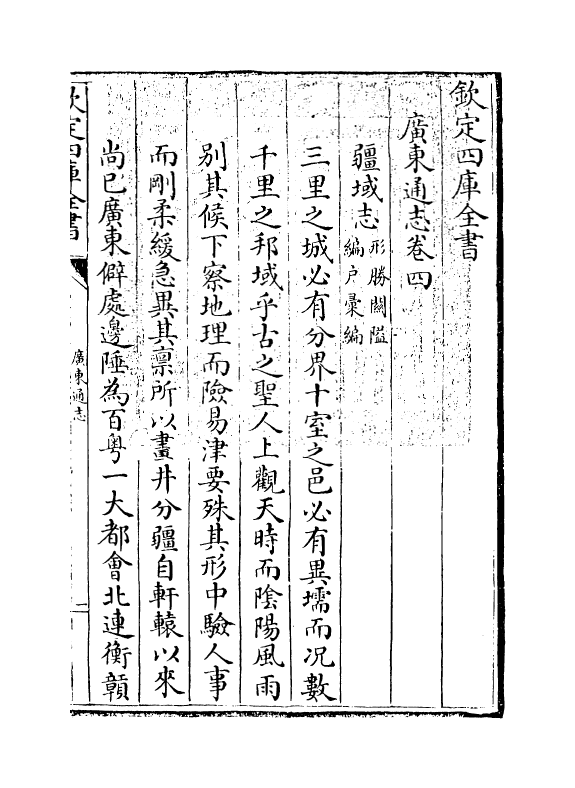 欽定四庫全書
廣東通志卷四
疆域志 形勝關隘 編户彙編
三里之城必有分界十室之邑必有異壖而况數
千里之邦域乎古之聖人上觀天時而陰陽風雨
别其候下察地理而險易津要殊其形中驗人事
而剛柔緩急異其禀所以畫井分疆自軒轅以來
尚已廣東僻處邊陲為百粤一大都會北連衡贛
欽定四庫全書
廣東通志
一